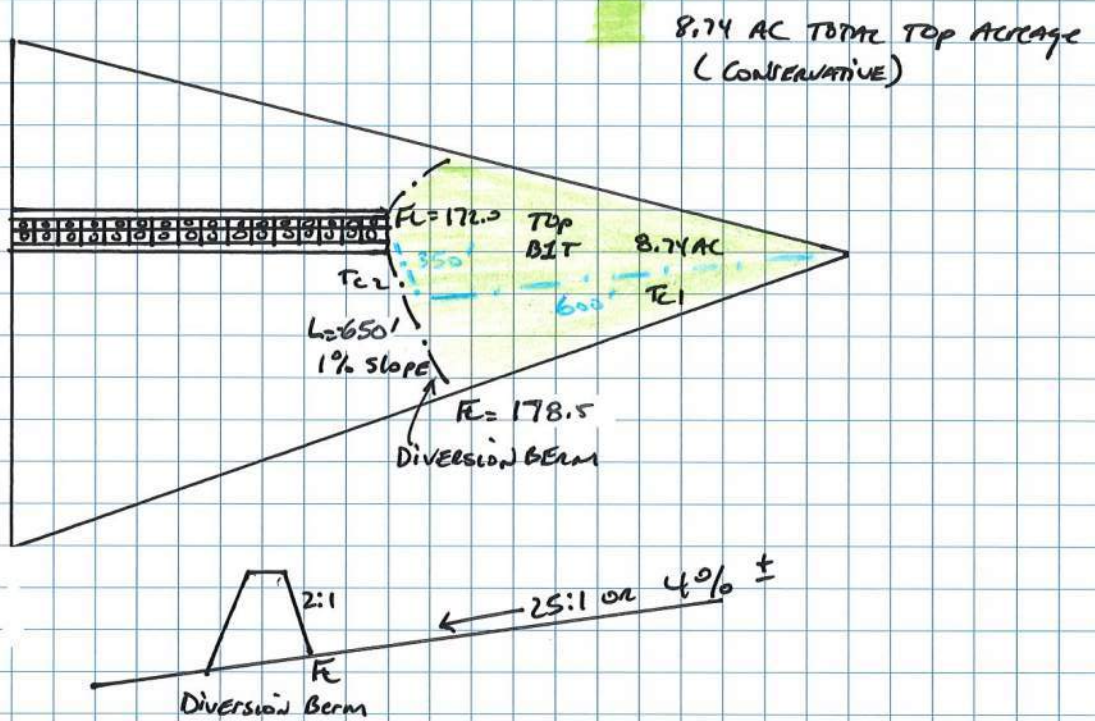 8.74 AC TOTAL TOP ACREAGE
(CONSERVATIVE)
FL=172.0
TOP
BIT
8.74AC
350'
Tc2
600'
Tc1
L=650'
1% SLOPE
FL= 178.5
DIVERSION BERM
2:1
25:1 OR 4% ±
FL
DIVERSION Berm